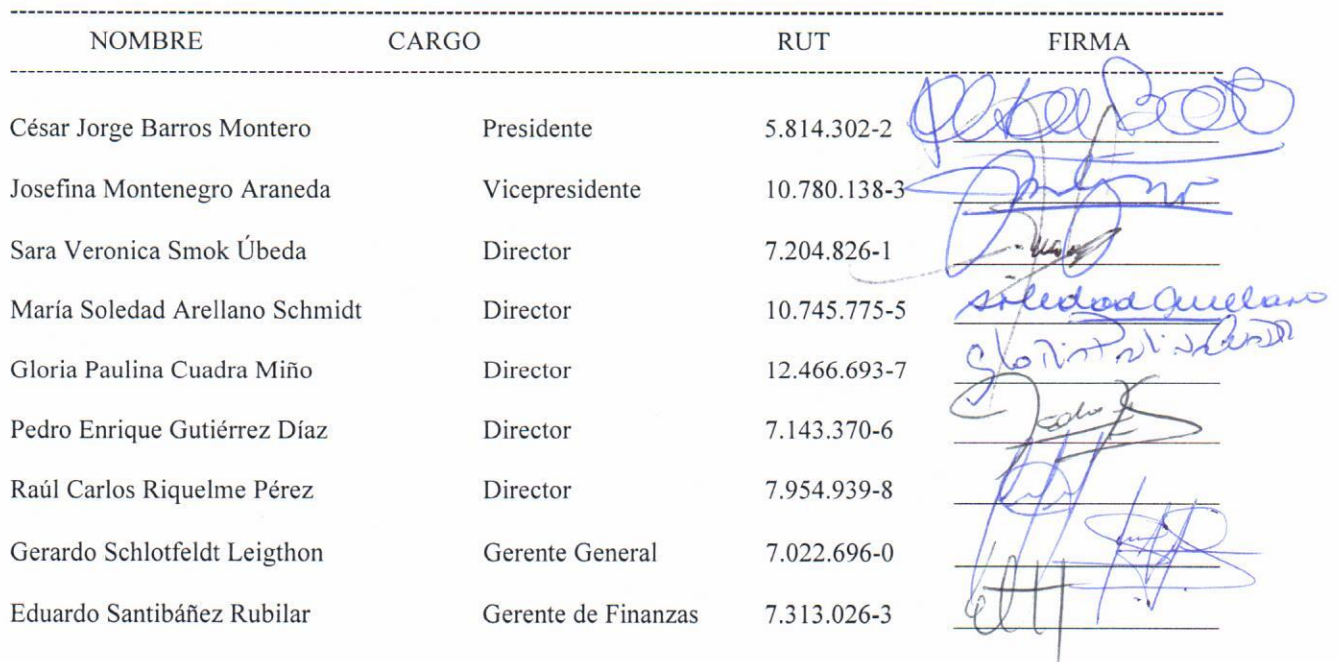 NOMBRE CARGO RUT FIRMA
César Jorge Barros Montero Presidente 5.814.302-2
Josefina Montenegro Araneda Vicepresidente 10.780.138-3
Sara Veronica Smok Úbeda Director 7.204.826-1
María Soledad Arellano Schmidt Director 10.745.775-5 Soledad Arellano
Gloria Paulina Cuadra Miño Director 12.466.693-7
Pedro Enrique Gutiérrez Díaz Director 7.143.370-6
Raúl Carlos Riquelme Pérez Director 7.954.939-8
Gerardo Schlotfeldt Leigthon Gerente General 7.022.696-0
Eduardo Santibáñez Rubilar Gerente de Finanzas 7.313.026-3